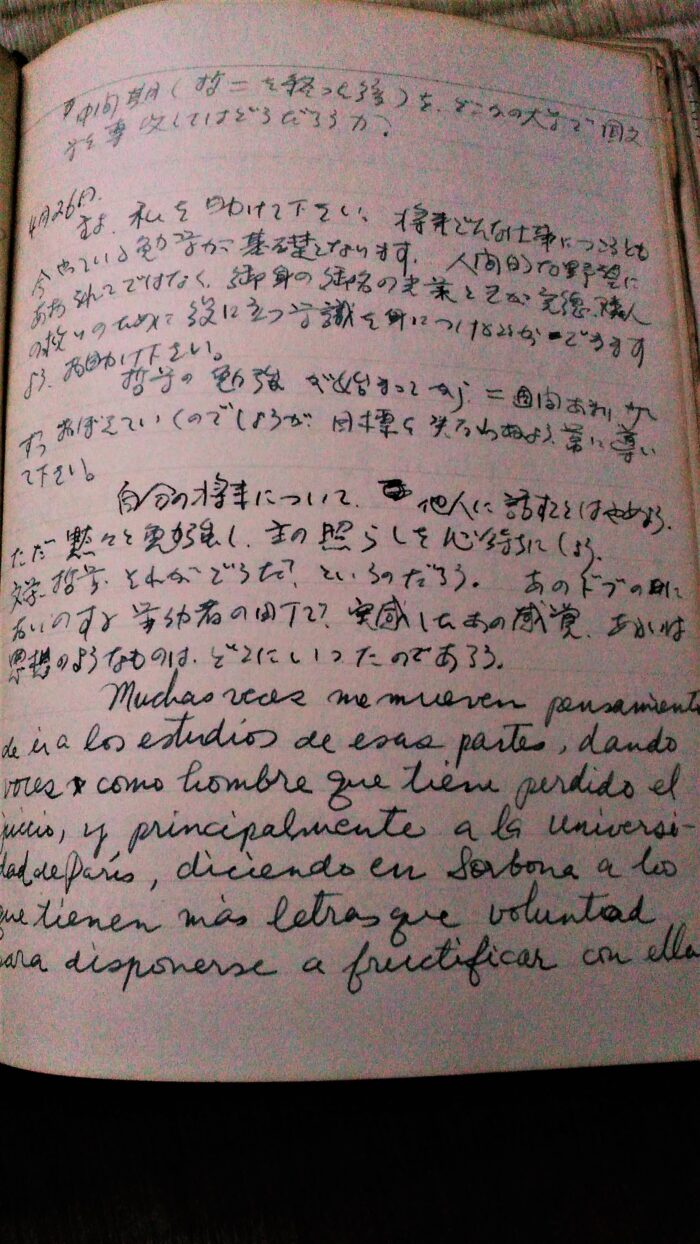 中間期（哲二を終った後）を、どこかの大学で国文
学を専攻してはどうだろうか？
4月26日.
主よ、私を助けて下さい、将来どんな仕事につこうとも
今やっている勉学が基礎となります。人間的な野望に
あおられてではなく、御身の御名の光栄と己が完徳、隣人
の救いのために役に立つ学識を身につけることができます
よう、お助け下さい。
哲学の勉強が始まってから、二週間あまり、少し
ずつおぼえていくのでしょうが、目標を失なわぬよう、常に導い
て下さい。
自分の将来について、他人に話すことはやめよう。
ただ黙々と勉強し、主の照らしを心待ちにしよう。
文学、哲学、それがどうだ？というのだろう。あのドブの
においのする労働者の町で、実感したあの感覚、あるいは
思想のようなものは、どこにいったのであろう。
Muchas veces me mueven pensamiento
de ir a los estudios de esas partes, dando
voces como hombre que tiene perdido el
juicio, y principalmente a la Universi-
dad de París, diciendo en Sorbona a los
que tienen más letras que voluntad
para disponerse a fructificar con ella